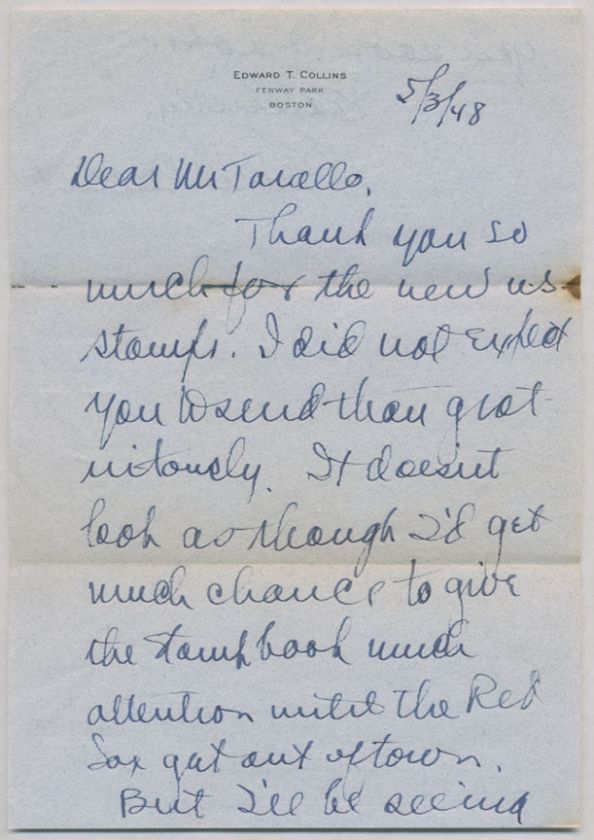 EDWARD T. COLLINS
FENWAY PARK
BOSTON
5/3/48
Dear Mr
Thank you so
much for the new us
stamps. I did not expect
you to send them grat-
uitously. It doesn't
look as though I'd get
much chance to give
the stamp book much
attention until the Red
Sox get out of town.
But I'll be seeing